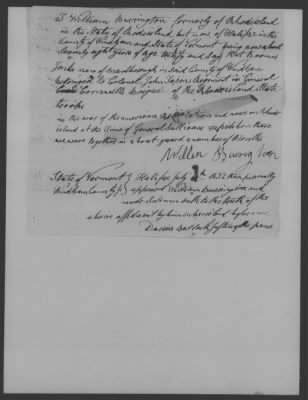 I William Burrington formerly of Rhode island
in the State of Rhode island but now of Halifax in the
County of Windham and State of Vermont being now about
Seventy eight years of age testify and say that Thomas
Jonks now of in said County of Windham
belonged to Colonel John Regiment in General
Brigade of the Rhode island State
troops
in the war of the american revolution and were on Rhode
island at the time of General Sullivans expedition there
we were together in about guard a number of Months
Willm Burington
State of Vermont } Halifax July 1832 then personally
Windham County ss } appeared William Burrington and
made solemn oath to the truth of the
above affidavit by him subscribed before me
Darius Bullock Justice of the peace